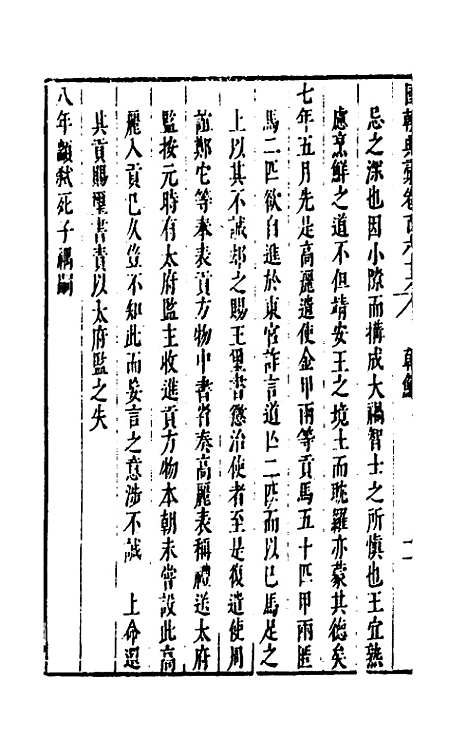 國朝典彙卷百六十六 朝鮮 二
忌之深也因小隙而搆成大禍智士之所慎也王宜熟
慮烹鮮之道不但靖安王之境土而耽羅亦蒙其德矣
七年五月先是高麗遣使金甲雨等貢馬五十匹甲雨匿
馬二匹欲自進於東宮詐言道亡二匹而以巳馬足之
上以其不誠却之賜王璽書懲治使者至是復遣使周
誼鄭它等奉表貢方物中書省奏高麗表稱禮送太府
監按元時有太府監主收進貢方物本朝未嘗設此高
麗入貢已久豈不知此而妄言之意涉不誠 上命還
其貢賜璽書責以太府監之失
八年顓弒死子禑嗣